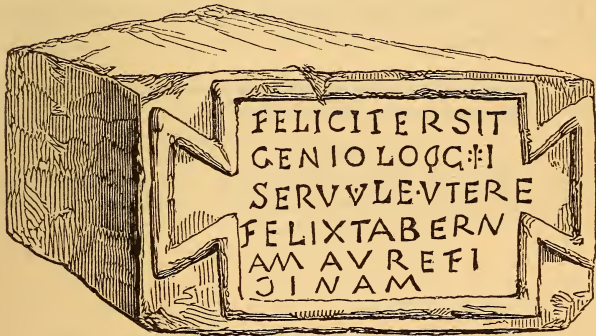 FELICITER SIT
GENIO LOCI
SERVVLE·VTERE
FELIX TABERN
AM AVREFI
CINAM